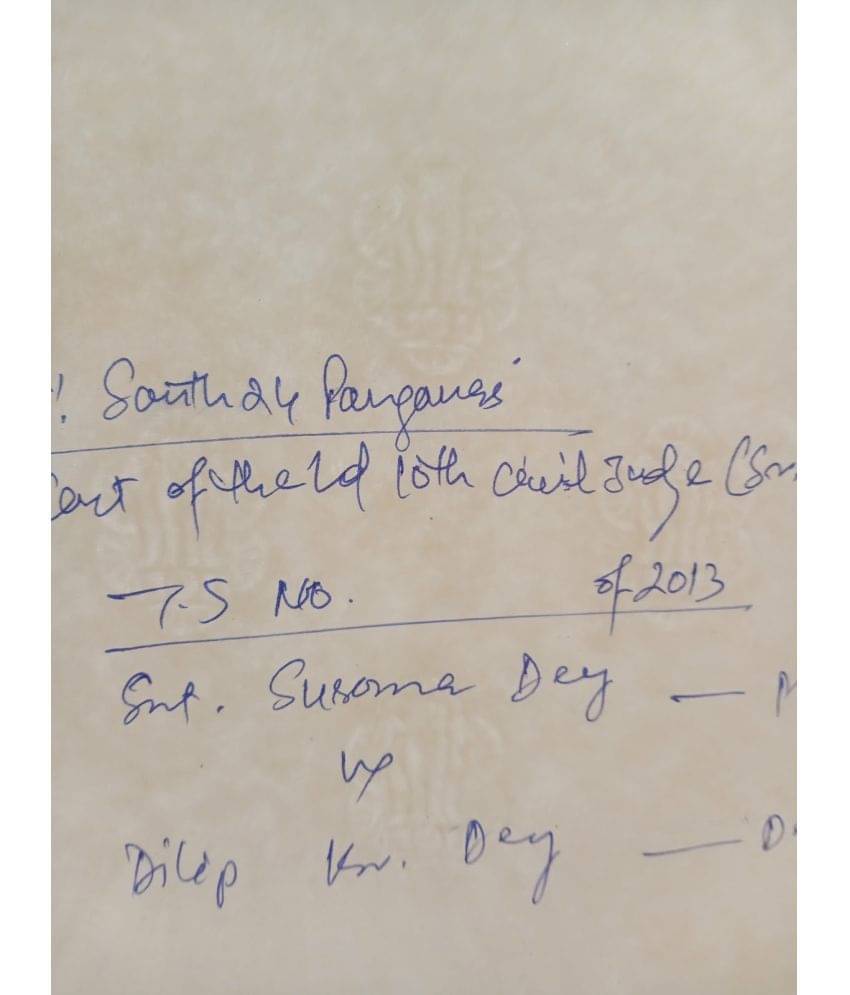 ! South 24 Parganas
Court of the Ld 10th Civil Judge (Sr.
T.S No. of 2013
Smt. Susoma Dey —
vs
Dilip Kr. Dey — D.